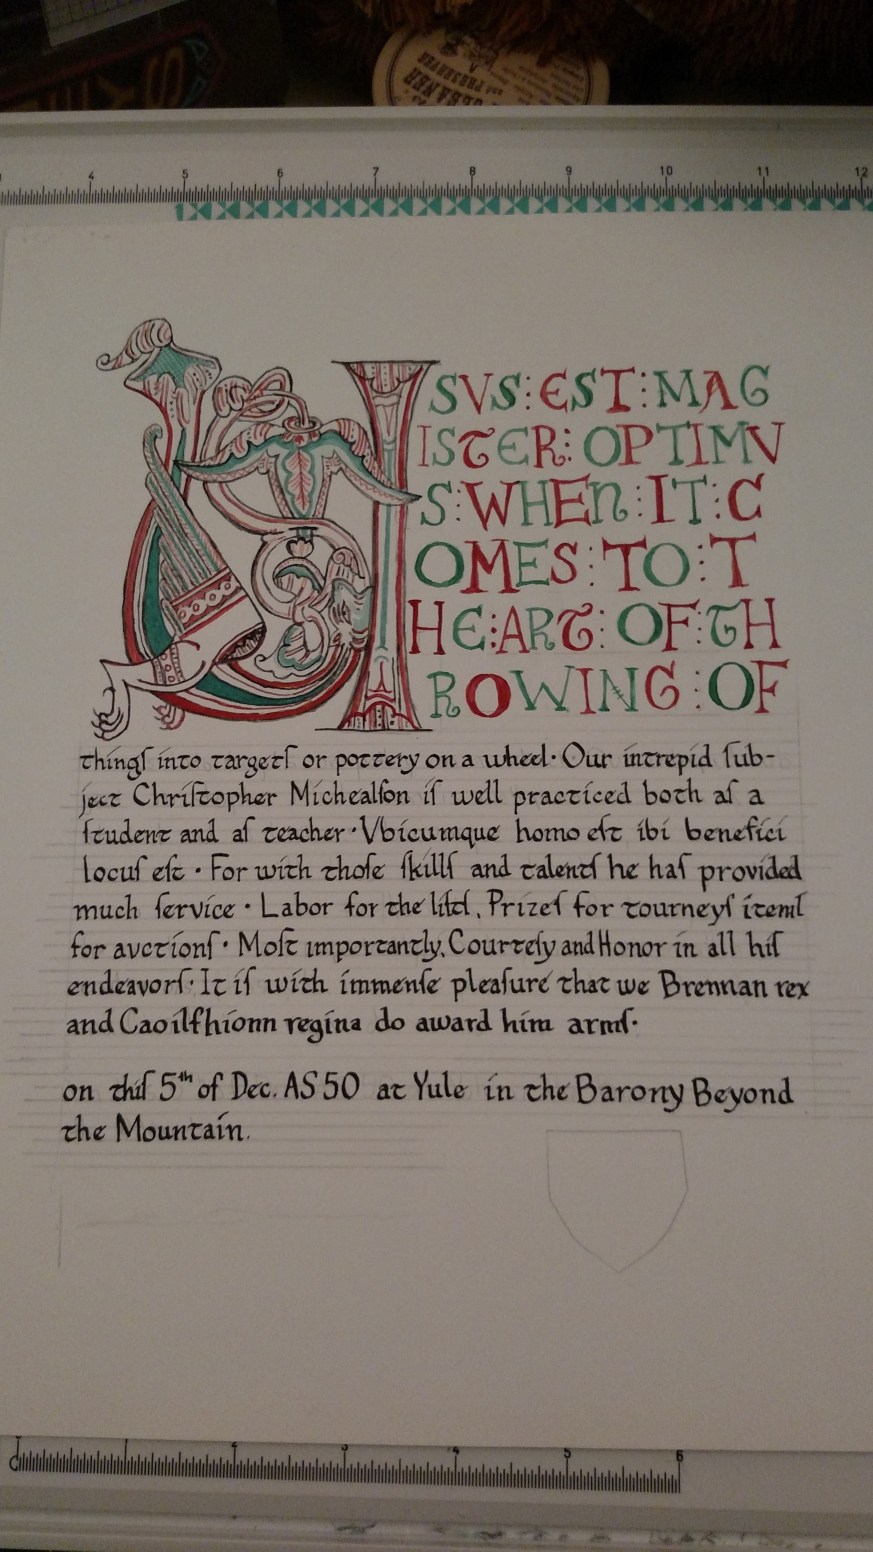 CLEANER
and PRESERVER
4 5 6 7 8 9 10 11 12
USVS⁝EST⁝MAG
ISTER⁝OPTIMV
S⁝WHEN⁝IT⁝C
OMES⁝TO⁝T
HE⁝ART⁝OF⁝TH
ROWING⁝OF
thingſ into targetſ or pottery on a wheel· Our intrepid ſub-
ject Chriſtopher Michealſon iſ well practiced both aſ a
ſtudent and aſ teacher·Vbicumque homo eſt ibi benefici
locuſ eſt · For with thoſe ſkillſ and talentſ he haſ provided
much ſervice · Labor for the liſt, Prizeſ for tourneyſ itemſ
for avctionſ· Moſt importantly, Courteſy and Honor in all hiſ
endeavorſ· It iſ with immenſe pleaſure that we Brennan rex
and Caoilfhionn regina do award him armſ·
on thiſ 5th of Dec. AS 50 at Yule in the Barony Beyond
the Mountain.
2 3 4 5 6